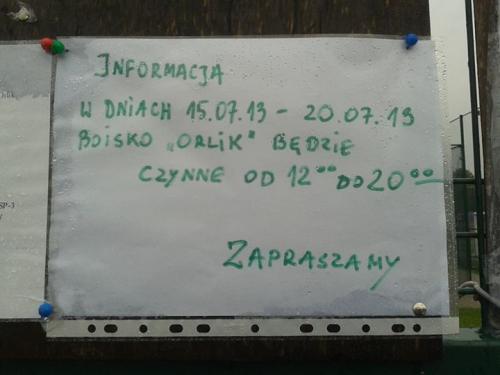 INFORMACJA
W DNIACH 15.07.13 - 20.07.13
BOISKO „ORLIK" BĘDZIE
CZYNNE OD 12⁰⁰ DO 20⁰⁰
ZAPRASZAMY
SP-3